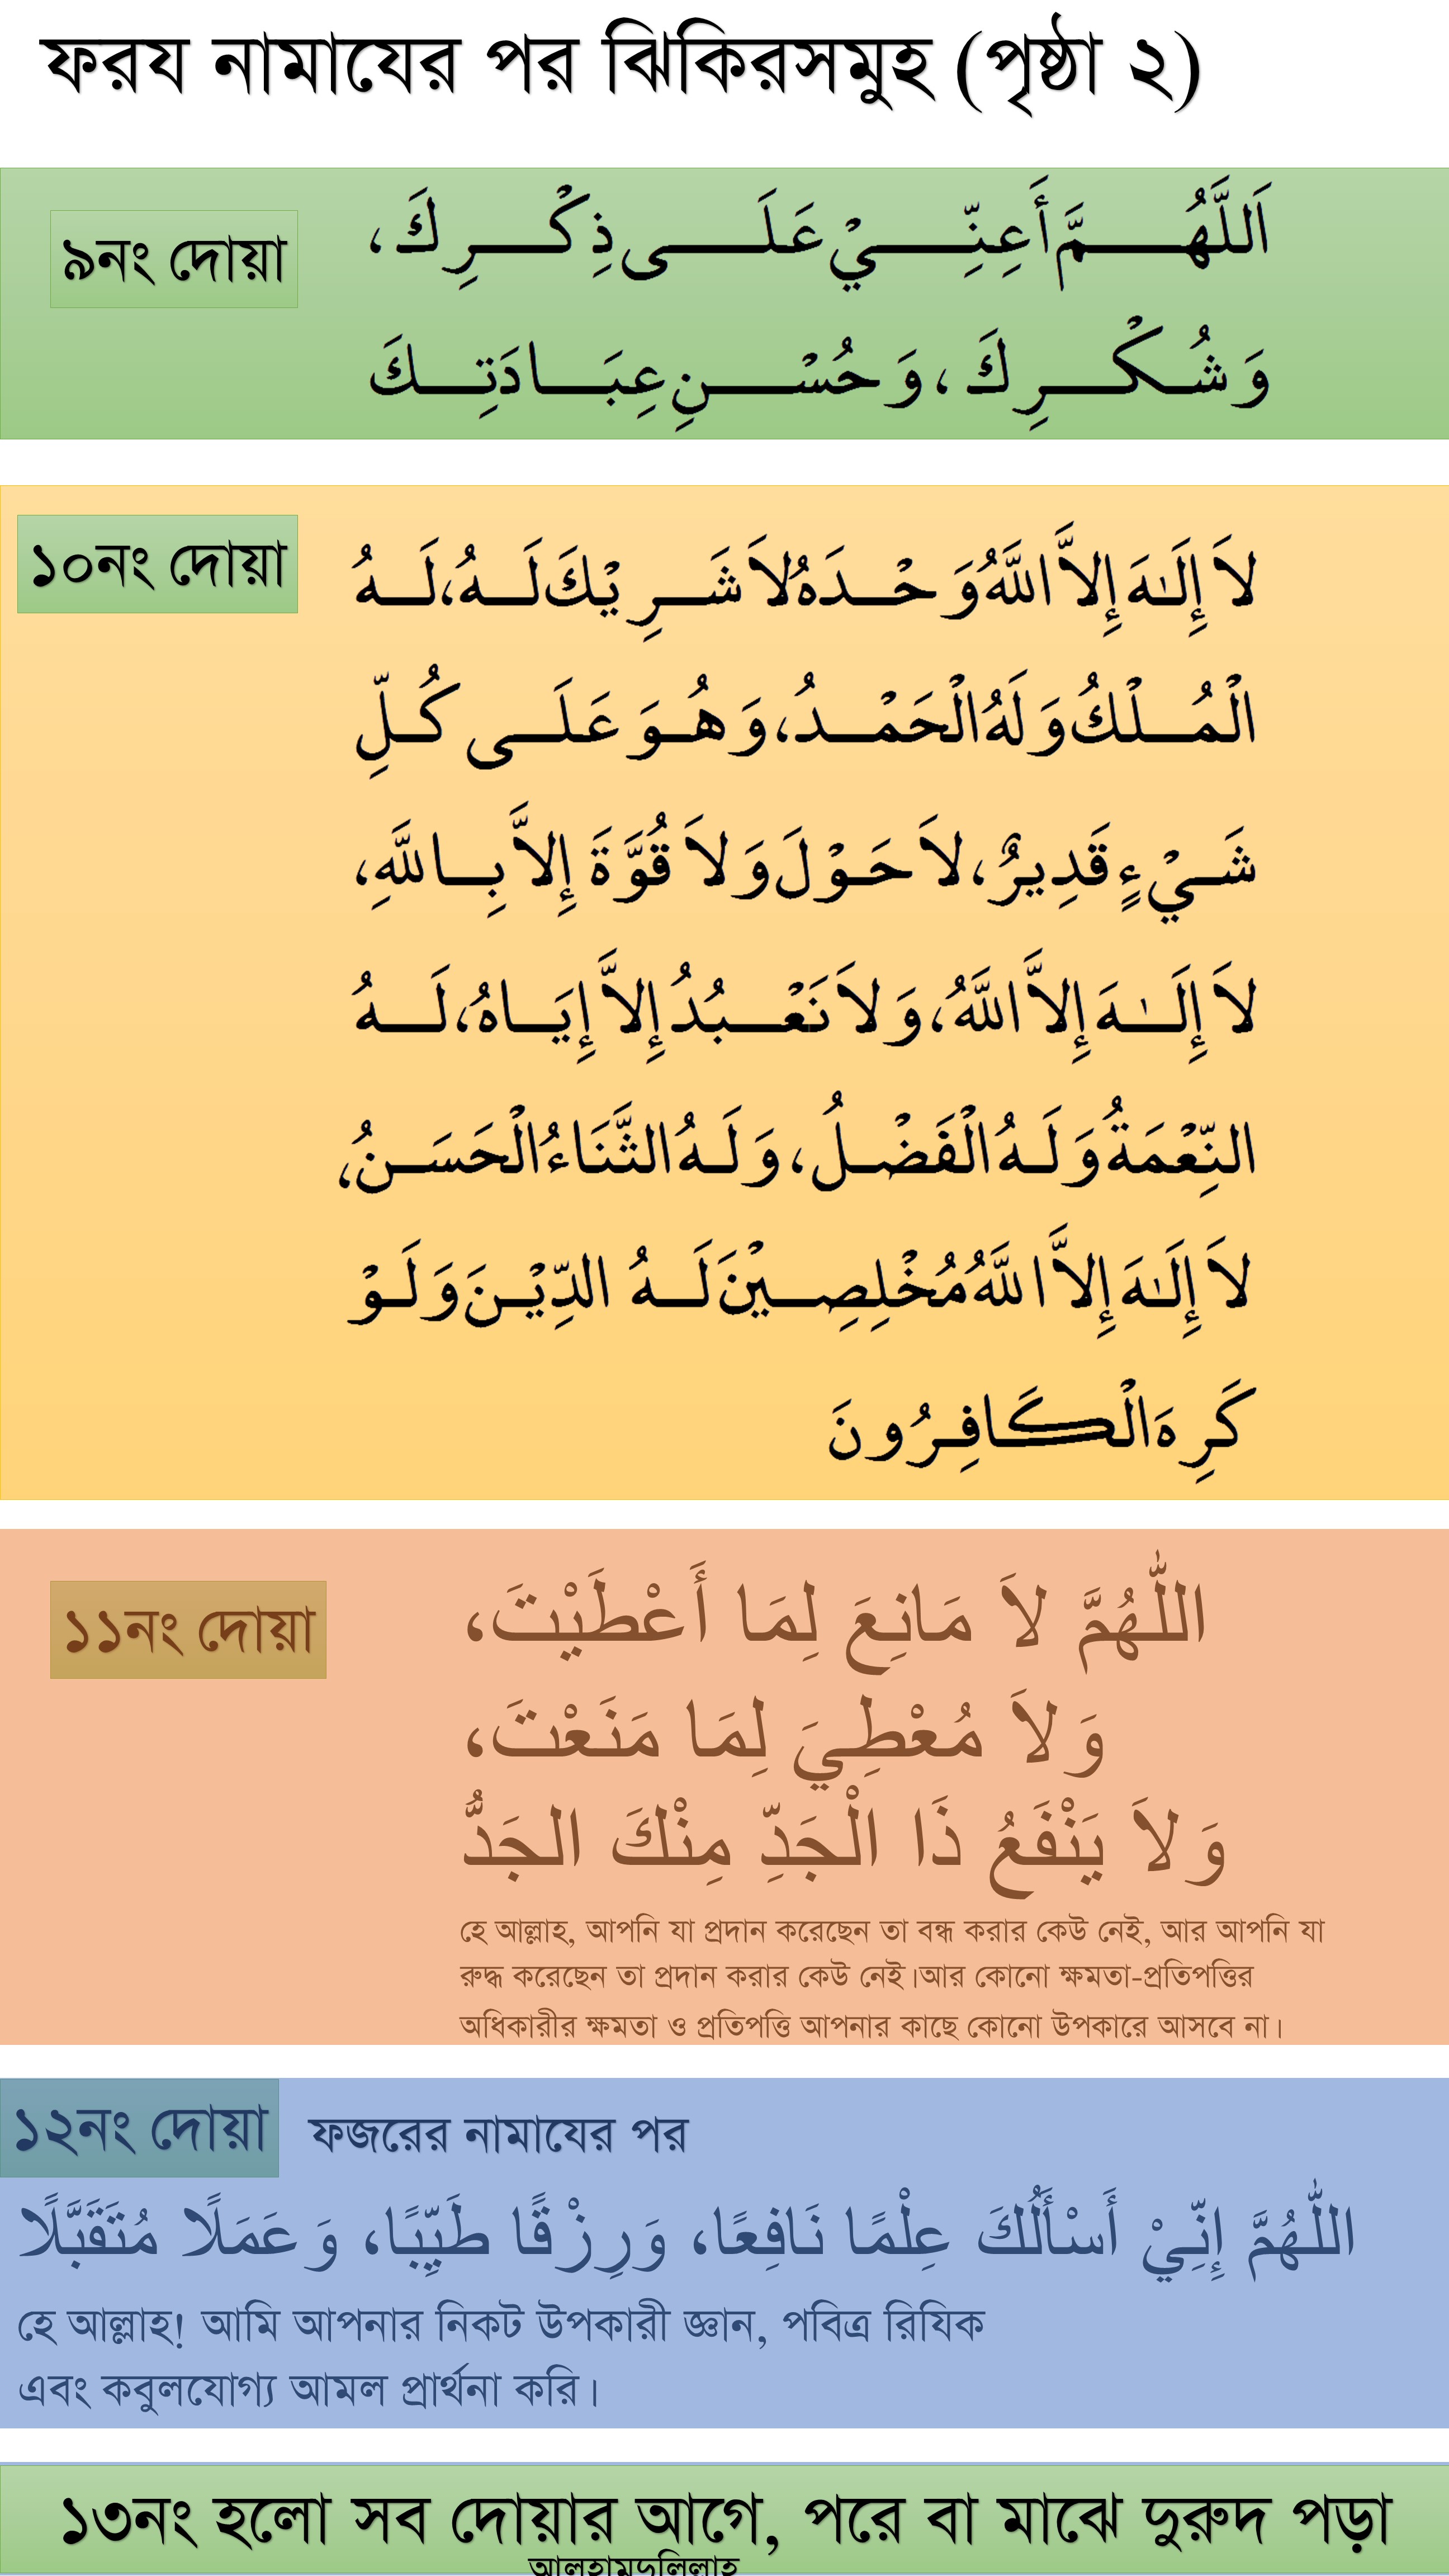 ফরয নামাযের পর ঝিকিরসমুহ (পৃষ্ঠা ২)
৯নং দোয়া
اَللَّهُمَّ أَعِنِّيْ عَلَى ذِكْرِكَ،
وَشُكْرِكَ، وَحُسْنِ عِبَادَتِكَ
১০নং দোয়া
لاَ إِلَهَ إِلاَّ اللَّهُ وَحْدَهُ لاَ شَرِيْكَ لَهُ، لَهُ
الْمُلْكُ وَلَهُ الْحَمْدُ، وَهُوَ عَلَى كُلِّ
شَيْءٍ قَدِيرٌ، لاَ حَوْلَ وَلاَ قُوَّةَ إِلاَّ بِاللَّهِ،
لاَ إِلَهَ إِلاَّ اللَّهُ، وَلاَ نَعْبُدُ إِلاَّ إِيَاهُ، لَهُ
النِّعْمَةُ وَلَهُ الْفَضْلُ، وَلَهُ الثَّنَاءُ الْحَسَنُ،
لاَ إِلَهَ إِلاَّ اللَّهُ مُخْلِصِيْنَ لَهُ الدِّيْنَ وَلَوْ
كَرِهَ الْكَافِرُونَ
১১নং দোয়া
اللّٰهُمَّ لاَ مَانِعَ لِمَا أَعْطَيْتَ،
وَلاَ مُعْطِيَ لِمَا مَنَعْتَ،
وَلاَ يَنْفَعُ ذَا الْجَدِّ مِنْكَ الجَدُّ
হে আল্লাহ, আপনি যা প্রদান করেছেন তা বন্ধ করার কেউ নেই, আর আপনি যা
রুদ্ধ করেছেন তা প্রদান করার কেউ নেই।আর কোনো ক্ষমতা-প্রতিপত্তির
অধিকারীর ক্ষমতা ও প্রতিপত্তি আপনার কাছে কোনো উপকারে আসবে না।
১২নং দোয়া
ফজরের নামাযের পর
اللّٰهُمَّ إِنِّيْ أَسْأَلُكَ عِلْمًا نَافِعًا، وَرِزْقًا طَيِّبًا، وَعَمَلًا مُتَقَبَّلًا
হে আল্লাহ! আমি আপনার নিকট উপকারী জ্ঞান, পবিত্র রিযিক
এবং কবুলযোগ্য আমল প্রার্থনা করি।
১৩নং হলো সব দোয়ার আগে, পরে বা মাঝে দুরুদ পড়া
আলহামদুলিল্লাহ